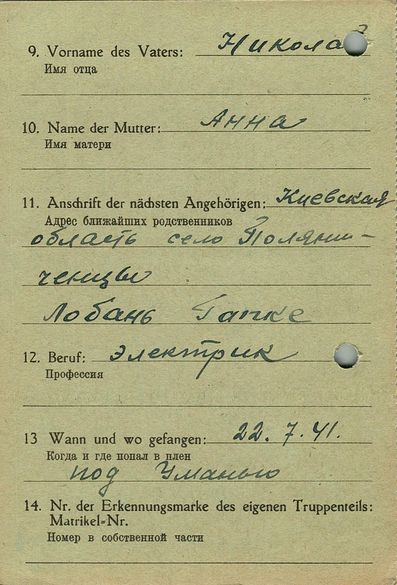 9. Vorname des Vaters: Николай
Имя отца
10. Name der Mutter: Анна
Имя матери
11. Anschrift der nächsten Angehörigen: Киевская
Адрес ближайших родственников
область село Поляни-
ченцы
Лобань Гапке
12. Beruf: электрик
Профессия
13 Wann und wo gefangen: 22. 7. 41.
Когда и где попал в плен
под Уманью
14. Nr. der Erkennungsmarke des eigenen Truppenteils:
Matrikel-Nr.
Номер в собственной части